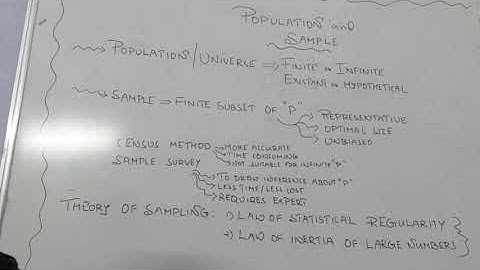 POPULATION and
SAMPLE
POPULATION/UNIVERSE ⇒ FINITE or INFINITE
EXISTANT or HYPOTHETICAL
SAMPLE ⇒ FINITE SUBSET OF "P"
REPRESENTATIVE
OPTIMAL SIZE
UNBIASED
CENSUS METHOD
MORE ACCURATE
TIME CONSUMING
NOT SUITABLE FOR INFINITE "P"
SAMPLE SURVEY
TO DRAW INFERENCE ABOUT "P"
LESS TIME/LESS COST
REQUIRES EXPERT
THEORY OF SAMPLING: 1) LAW OF STATISTICAL REGULARITY
2) LAW OF INERTIA OF LARGE NUMBERS